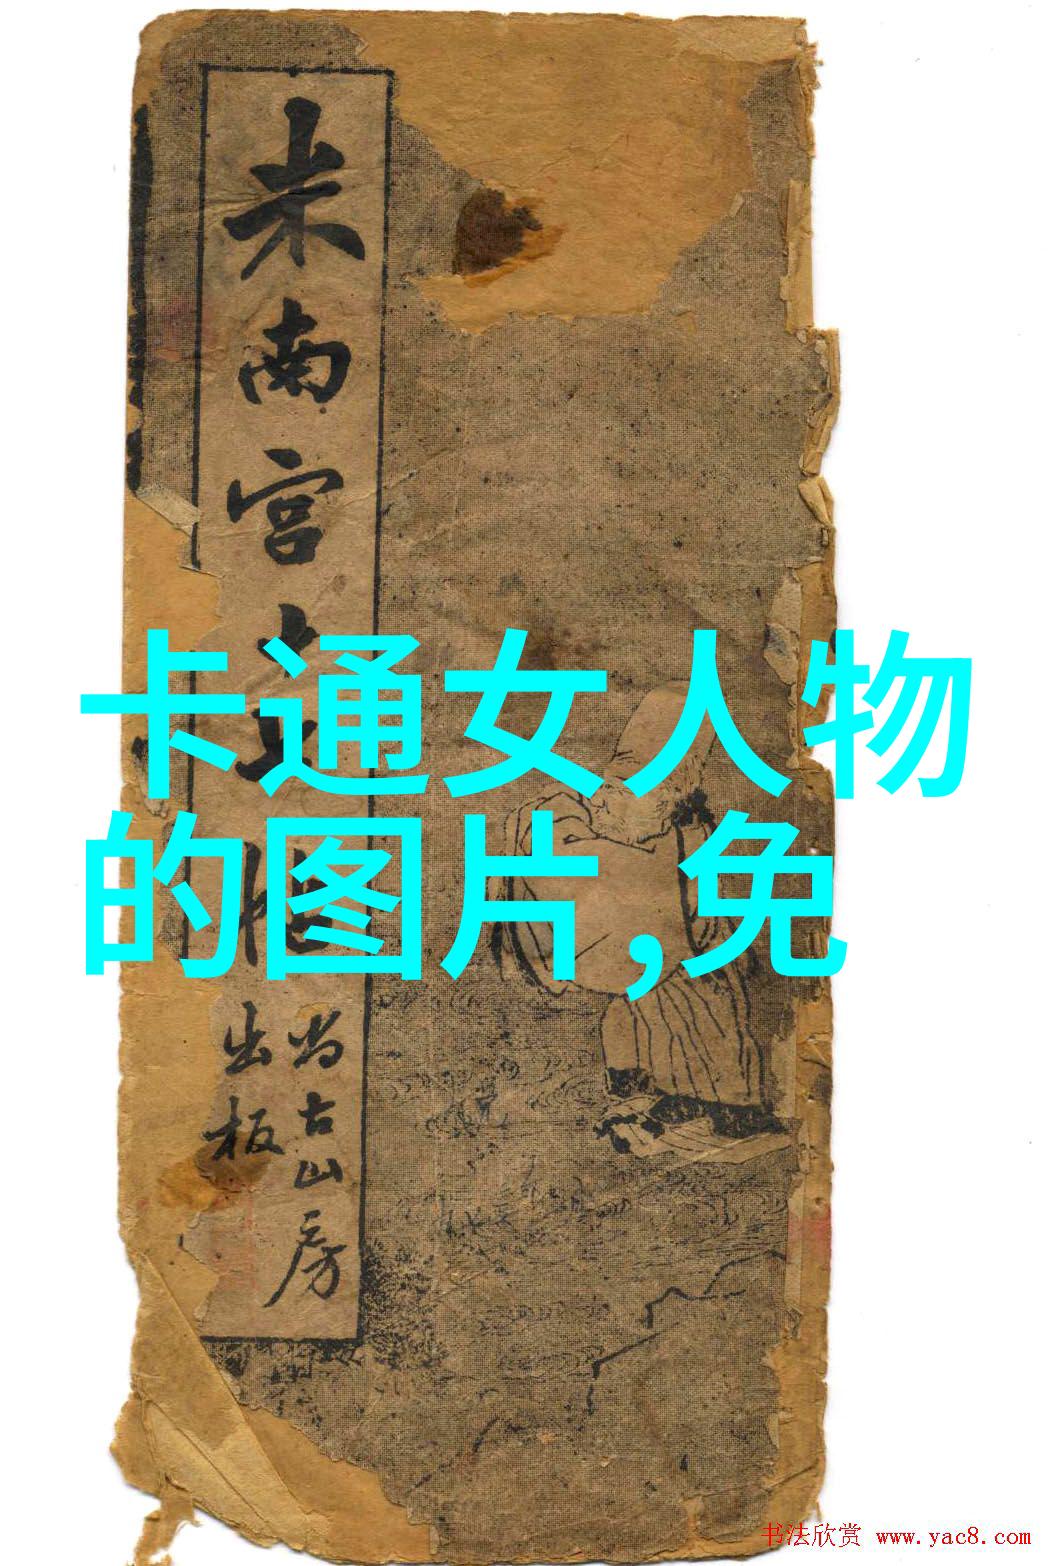 米南宫
尚古山房
出板
卡通女人物
的图片,免
书法欣赏 www.yac8.com